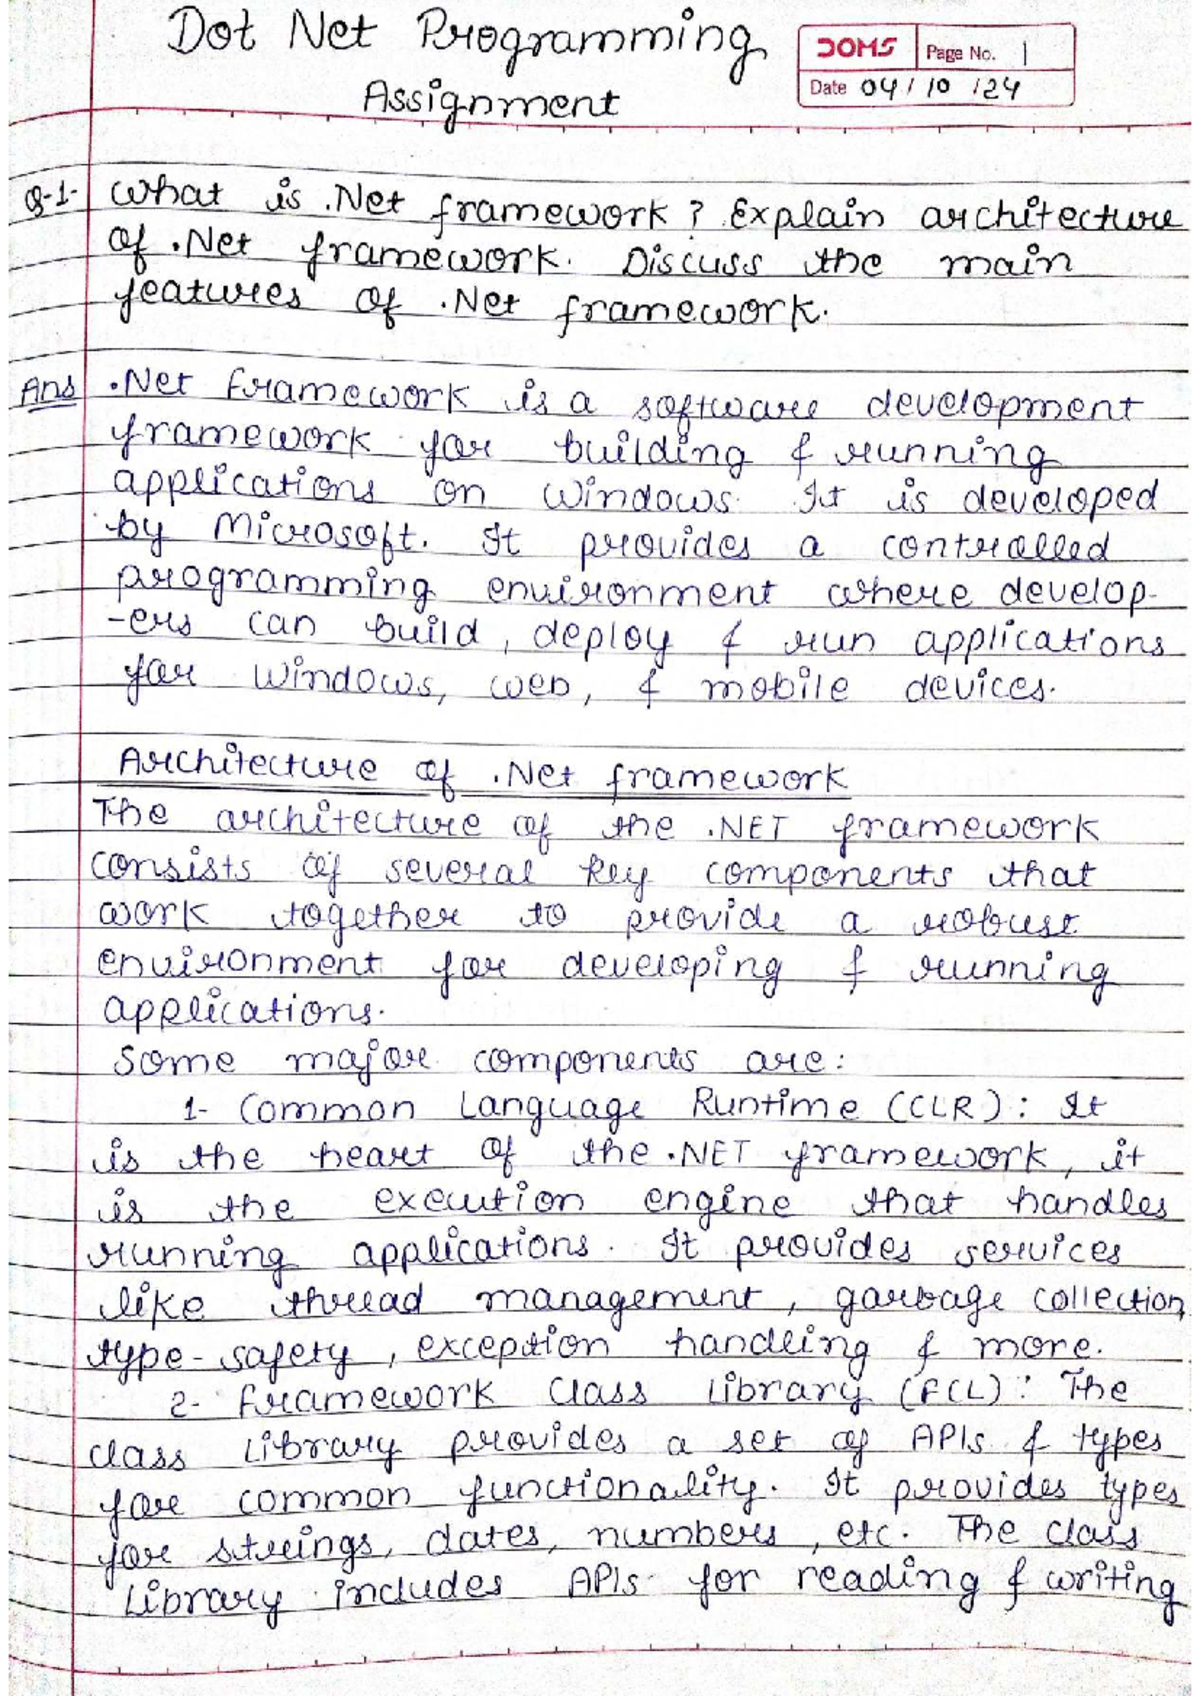 Dot Net Programming
Assignment
DOMS Page No. 1
Date 04/10/24
Q-1- What is .Net framework? Explain architecture
of .Net framework. Discuss the main
features of .Net framework.
Ans .Net Framework is a software development
framework for building & running
applications on Windows. It is developed
by Microsoft. It provides a controlled
programming environment where develop-
-ers can build, deploy & run applications
for Windows, web, & mobile devices.
Architecture of .Net framework
The architecture of the .NET framework
consists of several key components that
work together to provide a robust
environment for developing & running
applications.
Some major components are:
1- Common Language Runtime (CLR): It
is the heart of the .NET framework, it
is the execution engine that handles
running applications. It provides services
like thread management, garbage collection,
type-safety, exception handling & more.
2- Framework Class Library (FCL): The
class library provides a set of APIs & types
for common functionality. It provides types
for strings, dates, numbers, etc. The class
Library includes APIs for reading & writing